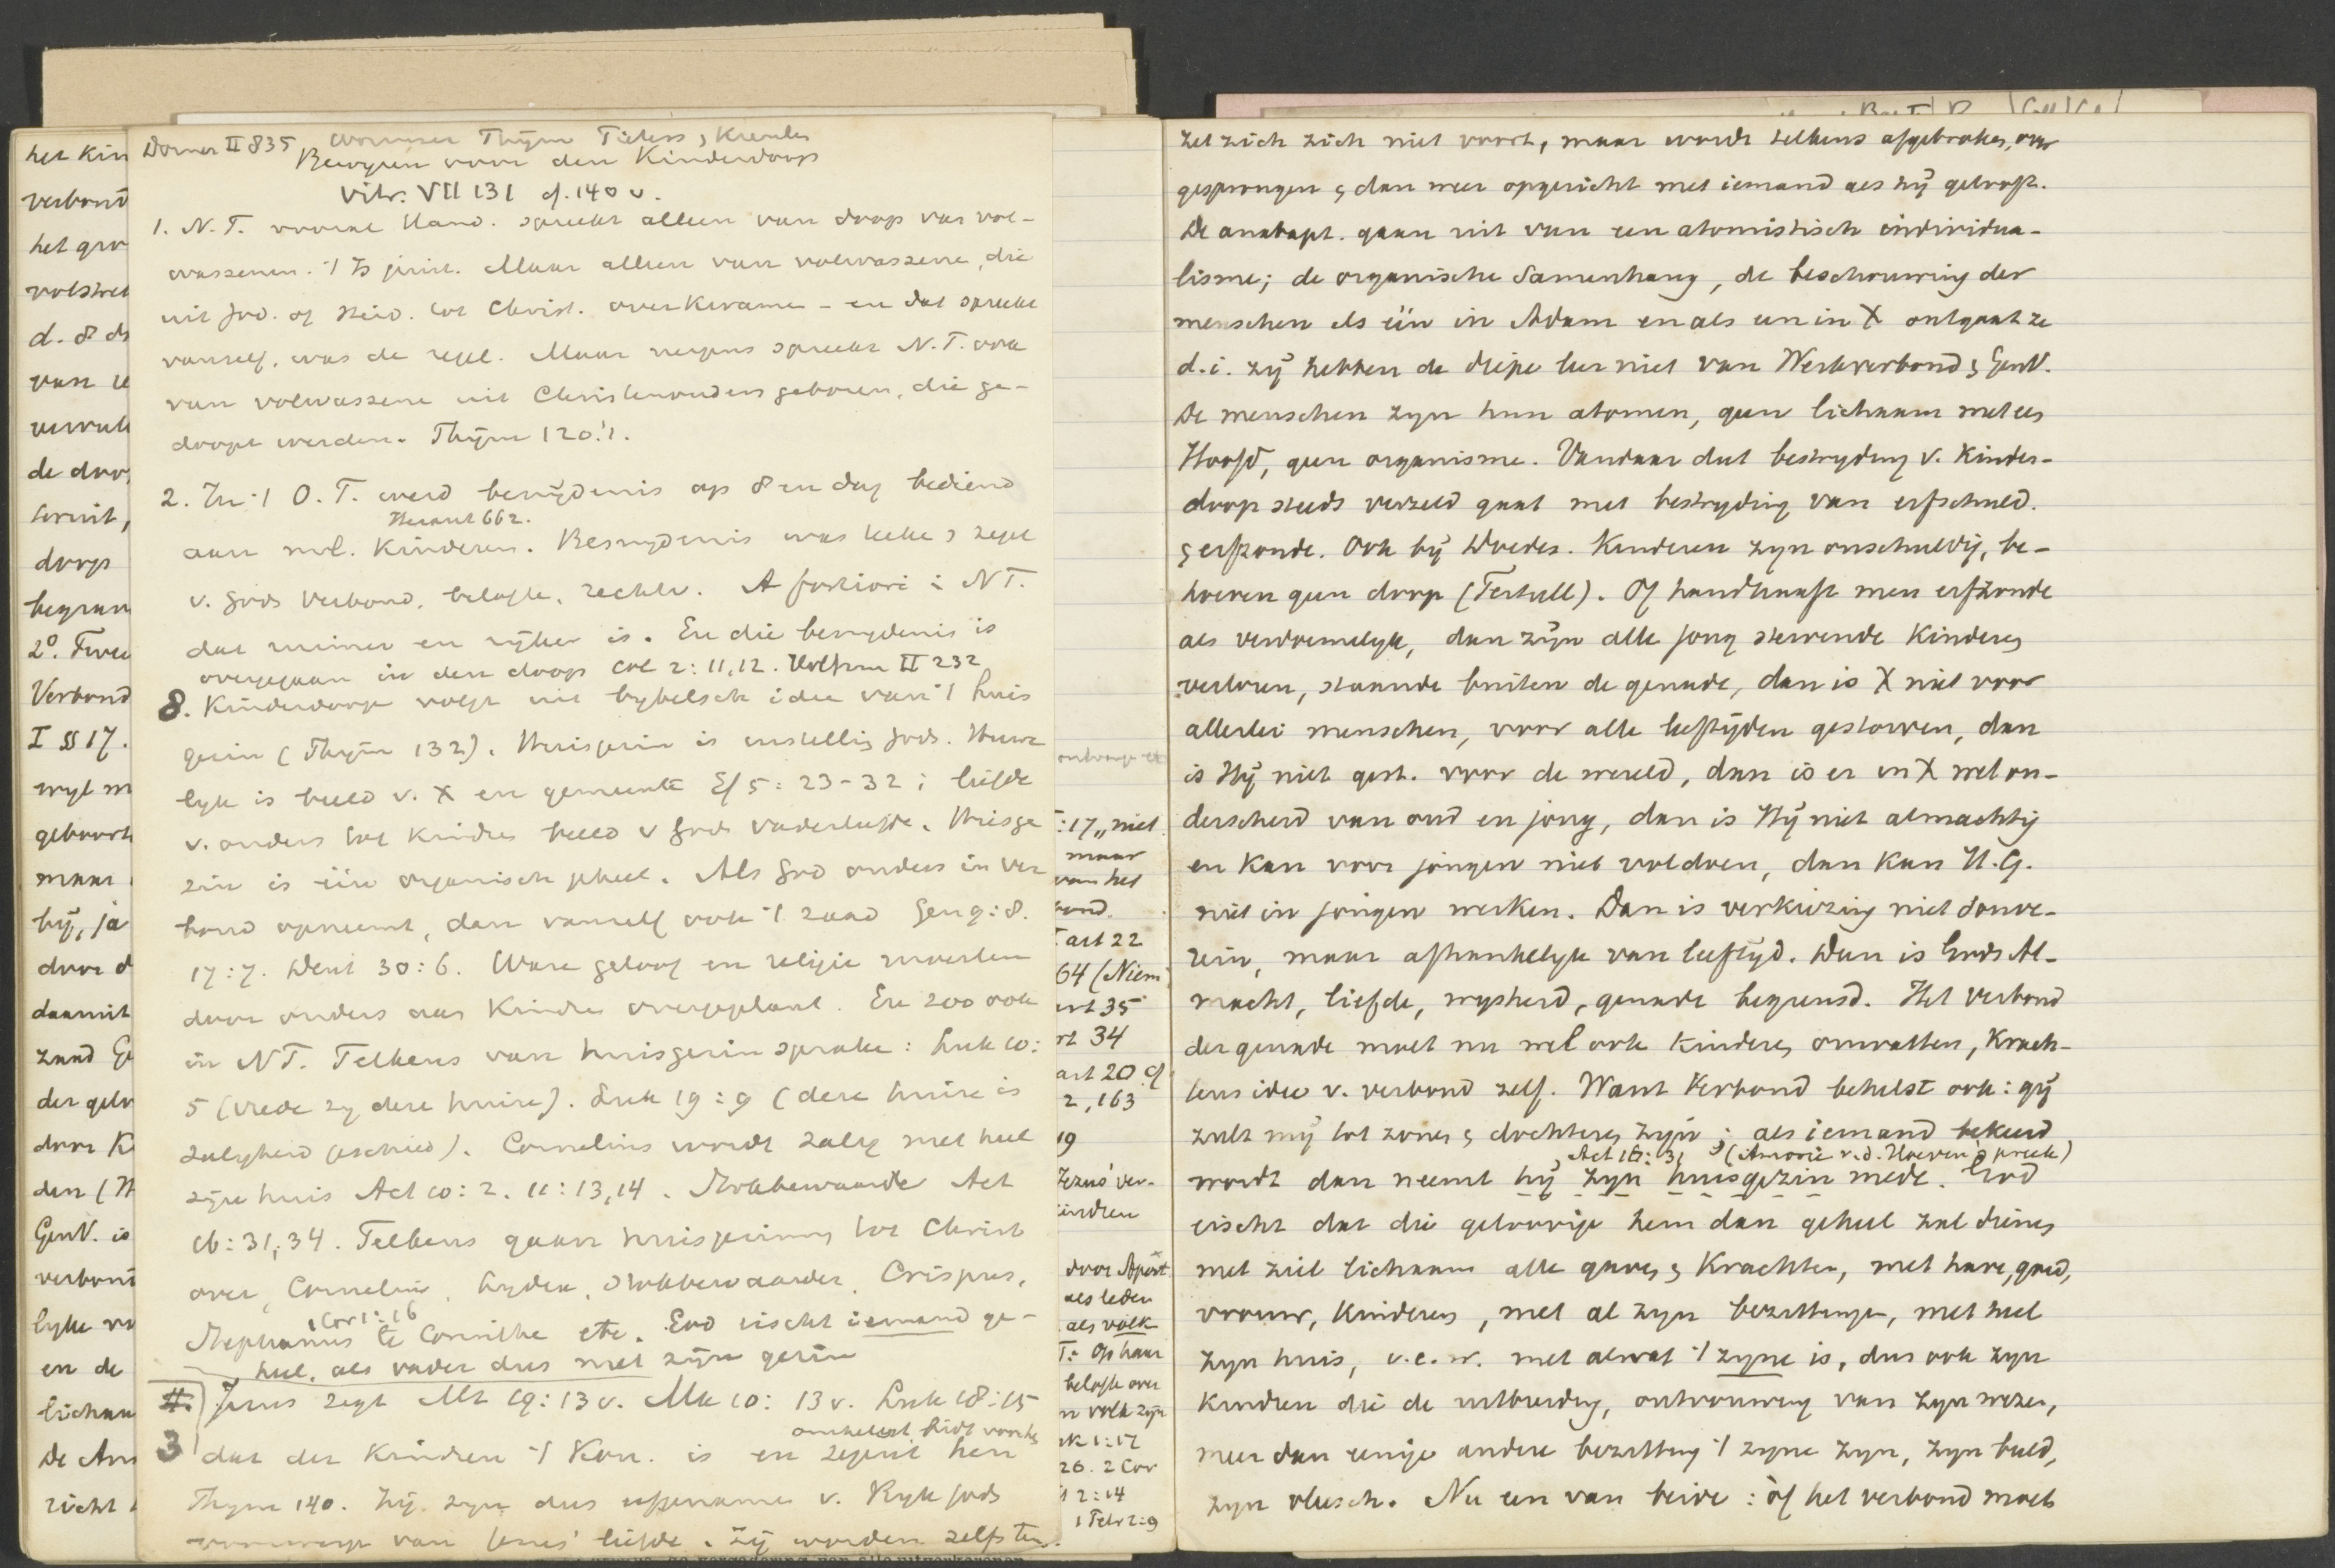 Dorner II 835
Bewyzen voor den Kinderdoop
Vitr. VII 131 cf. 140 v.
1. N.T. vooral Hand. spreekt alleen van doop van vol-
wassenen. 't Is juist. Maar alleen van volwassene, die
uit Jod. of Heid. tot Christ. overkwamen - en dat spreekt
vanzelf, was de regel. Maar nergens spreekt N.T. ook
van volwassene uit Christenouders geboren, die ge-
doopt werden. Thym 120.
2. In 't O.T. werd besnydenis op 8en dag bediend
Heraut 662.
aan ml. Kinderen. Besnydenis was teeken & zegel
v. Gods Verbond, belofte. A fortiori i NT.
dat ruimer en ryker is. En die besnydenis is
overgegaan in den doop Col 2:11,12. II 232
8. Kinderdoop volgt uit bybelsch idee van 't huis
gezin (Thym 132). Huisgezin is instelling Gods. Huwe
lyk is beeld v. X en gemeente Ef 5:23-32; liefde
v. ouders tot kindren beeld v Gods vaderliefde. Huisge
zin is één organisch geheel. Als God ouders in ver
bond opneemt, dan vanzelf ook 't zaad Gen 9:8.
17:7. Deut 30:6. Ware geloof en religie moesten
door ouders aan Kindren overgeplant. En zoo ook
in NT. Telkens van huisgezin sprake: Luk 10:
5 (Vrede zy dezen huize). Luk 19:9 (dezen huize is
zaligheid geschied). Cornelius wordt zalig met heel
zijn huis Act 10:2. 11:13,14. Stokbewaarder Act
16:31,34. Telkens gaan huisgezinnen tot Christ
over, Cornelius, Lydia, Stokbewaarder, Crispus,
1 Cor 1:16
Stephanus te Corinthe etc. God eischt iemand ge-
heel, als vader dus met zijn gezin
3 Jezus zegt Mt 19:13v. Mk 10:13v. Luk 18:15
dat der Kindren 't Kon. is en zegent hen
Thym 140. Zij zyn dus v. Ryk Gods
voorwerp van Jezus' liefde. Zij worden zelfs ten
het kin
verbond
het gro
volstrek
van
de doop
doop
begrün
2o. Twee
Verbond
I §§ 17.
wyl m
geboort
maar
bij, ja
door d
daarmit
zaad
der gelo
door K
den (H
GenV. is
verbond
lyke vo
en de
lichaam
De Ana
richt
:17 „niet
maar
van het
bond
art 22
64 (Niem
art 35
rt 34
art 20. cf
2, 163
19
Jezus' ver-
indren
door Apost
als leden
als volk
T: Op haar
belofte over
n volk zyn
26. 2 Cor
2:14
1 Petr 2:9
zet zich zich niet voort, maar wordt telkens afgebroken, over
gesprongen & dan weer opgericht met iemand als hy gelooft.
De anabapt. gaan uit van een atomistisch individua-
lisme; de organische Samenhang, de beschouwing der
menschen als één in Adam en als een in X ontgaat ze
d.i. zy hebben de diepe leer niet van Werkverbond & GenV.
De menschen zyn hun atomen, geen lichaam met een
Hoofd, geen organisme. Vandaar dat bestryding v. Kinder-
doop steeds verzeld gaat met bestryding van erfschuld.
& erfzonde. Ook by Doopers. Kinderen zyn onschuldig, be-
hoeven geen doop (Tertull). Of handhaaft men erfzonde
als verdoemelyk, dan zijn alle jong stervende Kinderen
verloren, staande buiten de genade, dan is X niet voor
allerlei menschen, voor alle leeftijden gestorven, dan
is Hij niet gest. voor de wereld, dan is er in X wel on-
derscheid van oud en jong, dan is Hij niet almachtig
en kan voor jongen niet voldoen, dan kan H.G.
niet in jongen werken. Dan is verkiezing niet souve-
rein, maar afhankelyk van leeftyd. Dan is Gods Al-
macht, liefde, wysheid, genade begrensd. Het verbond
der genade moet nu wel ook kinderen omvatten, krach-
tens idee v. verbond zelf. Want Verbond behelst ook: gij
zult mij tot zonen & dochteren zyn; als iemand bekeerd
Act 16:31 (Amorie v.d. Hoeven's preek)
wordt dan neemt hy zyn huisgezin mede. God
eischt dat die geloovige hem dan geheel zal dienen
met ziel lichaam alle gaven & Krachten, met have, goed,
vrouw, kinderen, met al zyn bezittingen, met heel
zyn huis, v.e.w. met alwat 't zyne is, dus ook zyn
kindren die de uitbreiding, ontvouwing van zyn wezen,
meer dan eenige andere bezitting 't zyne zyn, zyn beeld,
zyn vleesch. Nu een van beide: òf het verbond moet